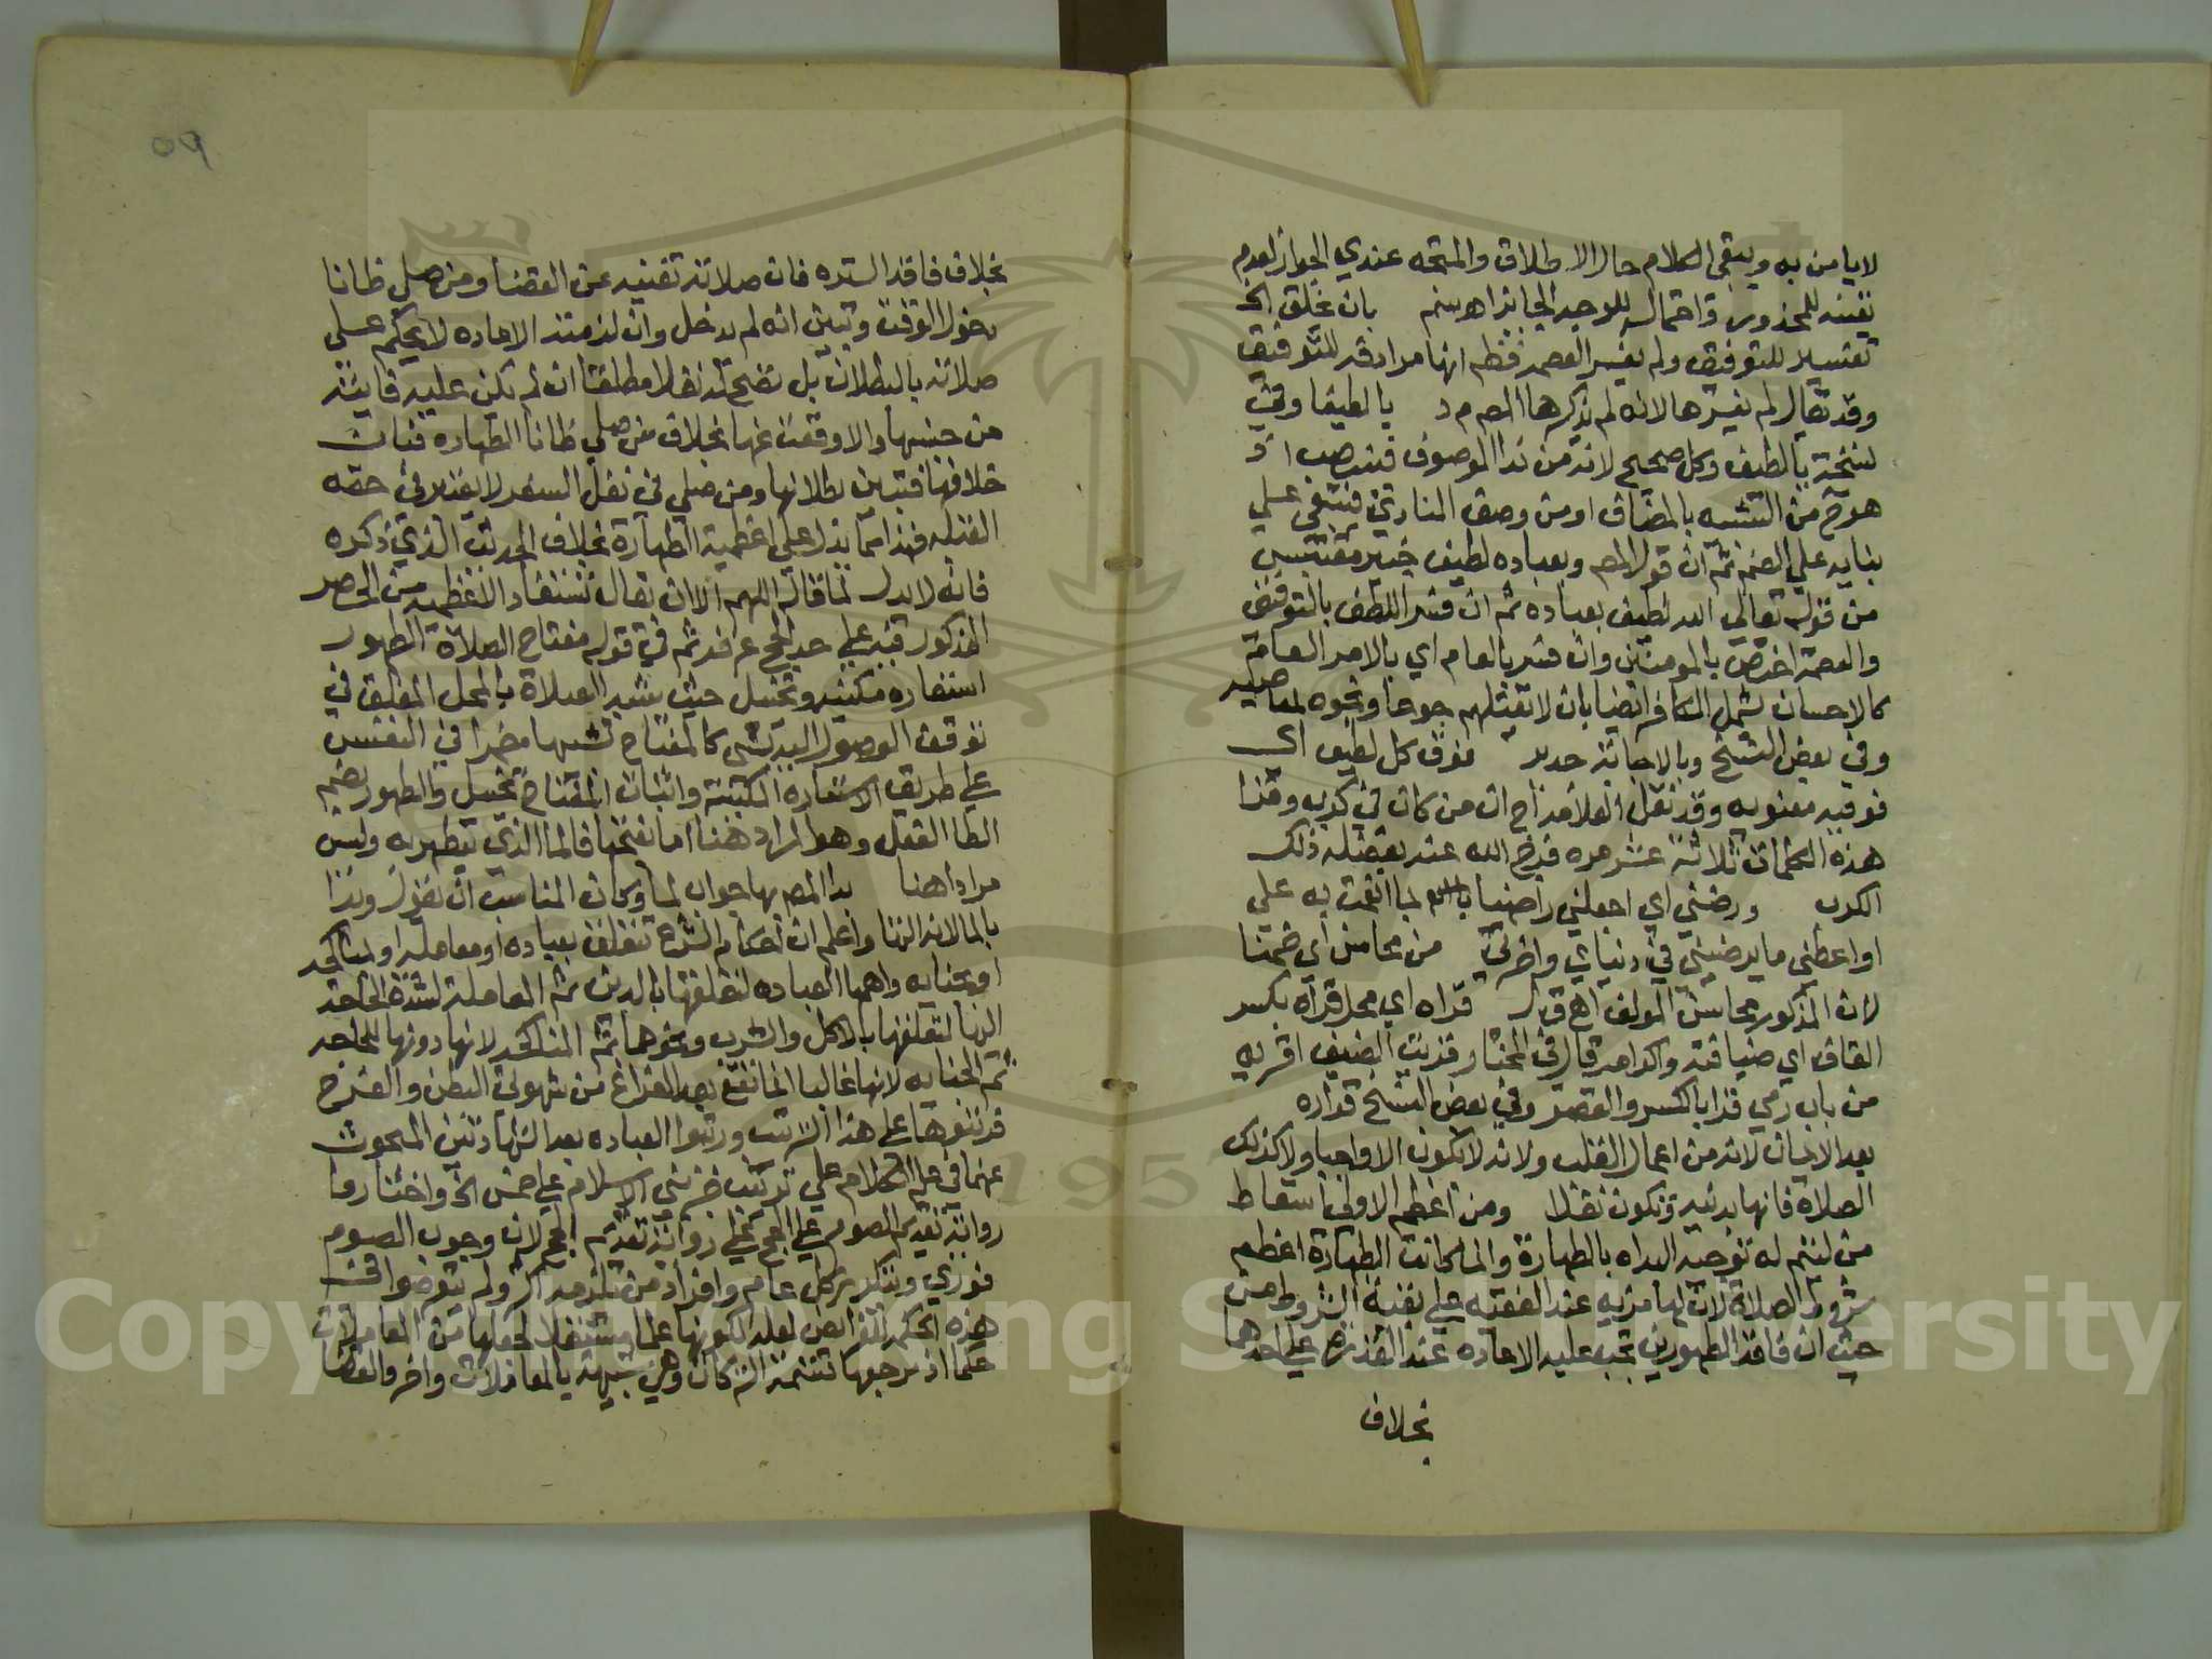 لا يا من به ويبقى الكلام حال الاطلاق والمتجه عندي الجواز لعدم
تعينه للمحذور واحتمال للوجه الجائز اهـ سم بان يخلق الخ
تفسير للتوفيق ولم يفسر العصمة فظهر انها مرادفة للتوفيق
وقد يقال لم يفسرها لانه لم يذكرها المص م د يا لطيفا وفي
نسخة يا لطيف وكل صحيح لانه من ندا الموصوف فينصب اذ
هو ح من الشبيه بالمضاف او من وصف المنادى فيبقى على
بنايه على الضم ثم ان قول المص وبعباده لطيف خبير مقتبس
من قوله تعالى الله لطيف بعباده ثم ان فسر اللطف بالتوفيق
والعصمة اختص بالمومنين وان فسر بالعام اي بالامر العام
كالاحسان شمل الكافر ايضا بان لا يقتلهم جوعا ونحوه لمعاصيهم
وفي بعض النسخ وبالاجابة جدير فوق كل لطيف اي
فوقية معنوية وقد نقل العلامة اج ان من كان في كرب وقرا
هذه الكلمات ثلاثة عشر مرة فرج الله عنه بفضله ذلك
الكرب ورضني اي اجعلني راضيا بالله لما انعمت به علي
او اعطني ما يرضيني في دنياي واخرتي من محاسن اي ضمنا
لان المذكور محاسن المولف اهـ ق ل قراه اي محل قراه بكسر
القاف اي ضيافته واكرامه قال في المختار وقريت الضيف اقريه
من باب رمي قرا بالكسر والقصر وفي بعض النسخ قراره
بعد الايمان لانه من اعمال القلب ولانه لا يكون الا واجبا ولا كذلك
الصلاة فانها بدنية وتكون نفلا ومن اعظم الاولى اسقاط
من ليتم له توجيه البداة بالطهارة وانما كانت الطهارة اعظم
شروط الصلاة لان لها مزية عند الفقيه على بقية الشروط من
حيث ان فاقد الطهورين تجب عليه الاعادة عند القدرة على احدهما
بخلاف
٥٩
بخلاف فاقد السترة فان صلاته تغنيه عن القضا ومن صلى ظانا
دخول الوقت وتبين انه لم يدخل وان لزمته الاعادة لا يحكم على
صلاته بالبطلان بل تصح له نفلا مطلقا ان لم تكن عليه فايتة
من جنسها والا وقعت عنها بخلاف من صلى ظانا الطهارة فبان
خلافها فتبين بطلانها ومن صلى في نفل السفر لا يعتبر في حقه
القبلة فهذا مما يدل على اعظمية الطهارة بخلاف الحديث الذي ذكره
فانه لا يدل لما قاله اللهم الا ان يقال تستفاد الاعظمية من الحصر
المذكور فيه على حد الحج عرفة ثم في قوله مفتاح الصلاة الطهور
استعارة مكنية وتخييل حيث شبه الصلاة بالمحل المغلق في
توقف الوصول اليه بشي كالمفتاح تشبيها مضمرا في النفس
على طريق الاستعارة المكنية واثبات المفتاح تخييل والطهور بضم
الطا الفعل وهو المراد هنا اما بفتحها فالما الذي يتطهر به وليس
مرادا هنا بدا المص بها جواب لما وكان المناسب ان يقول وبدا
بالما لانه الها واعلم ان احكام الشرع تتعلق بعبادة او معاملة او مناكحة
او جناية واهمها العبادة لتعلقها بالدين ثم المعاملة لشدة الحاجة
اليها لتعلقها بالاكل والشرب ونحوهما ثم المناكحة لانها دونها للحاجة
ثم الجناية لانها غالبا انما تقع بعد الفراغ من شهوتي البطن والفرج
فرتبوها على هذا الترتيب ورتبوا العبادة بعد الشهادتين المبحوث
عنهما في علم الكلام على ترتيب خبر بني الاسلام على خمس الخ واختاروا
رواية تقديم الصوم على الحج على رواية تقديم الحج لان وجوب الصوم
فوري ويتكرر كل عام وافراد من تلزمه اكثر ولم يتعرضوا في
هذه الحكمة للفرائض لعله لكونها علما مستقلا لجعلها من المعاملات
علما اذ مرجعها لقسمة التركات وهي شبيهة بالمعاملات واخر والقضا